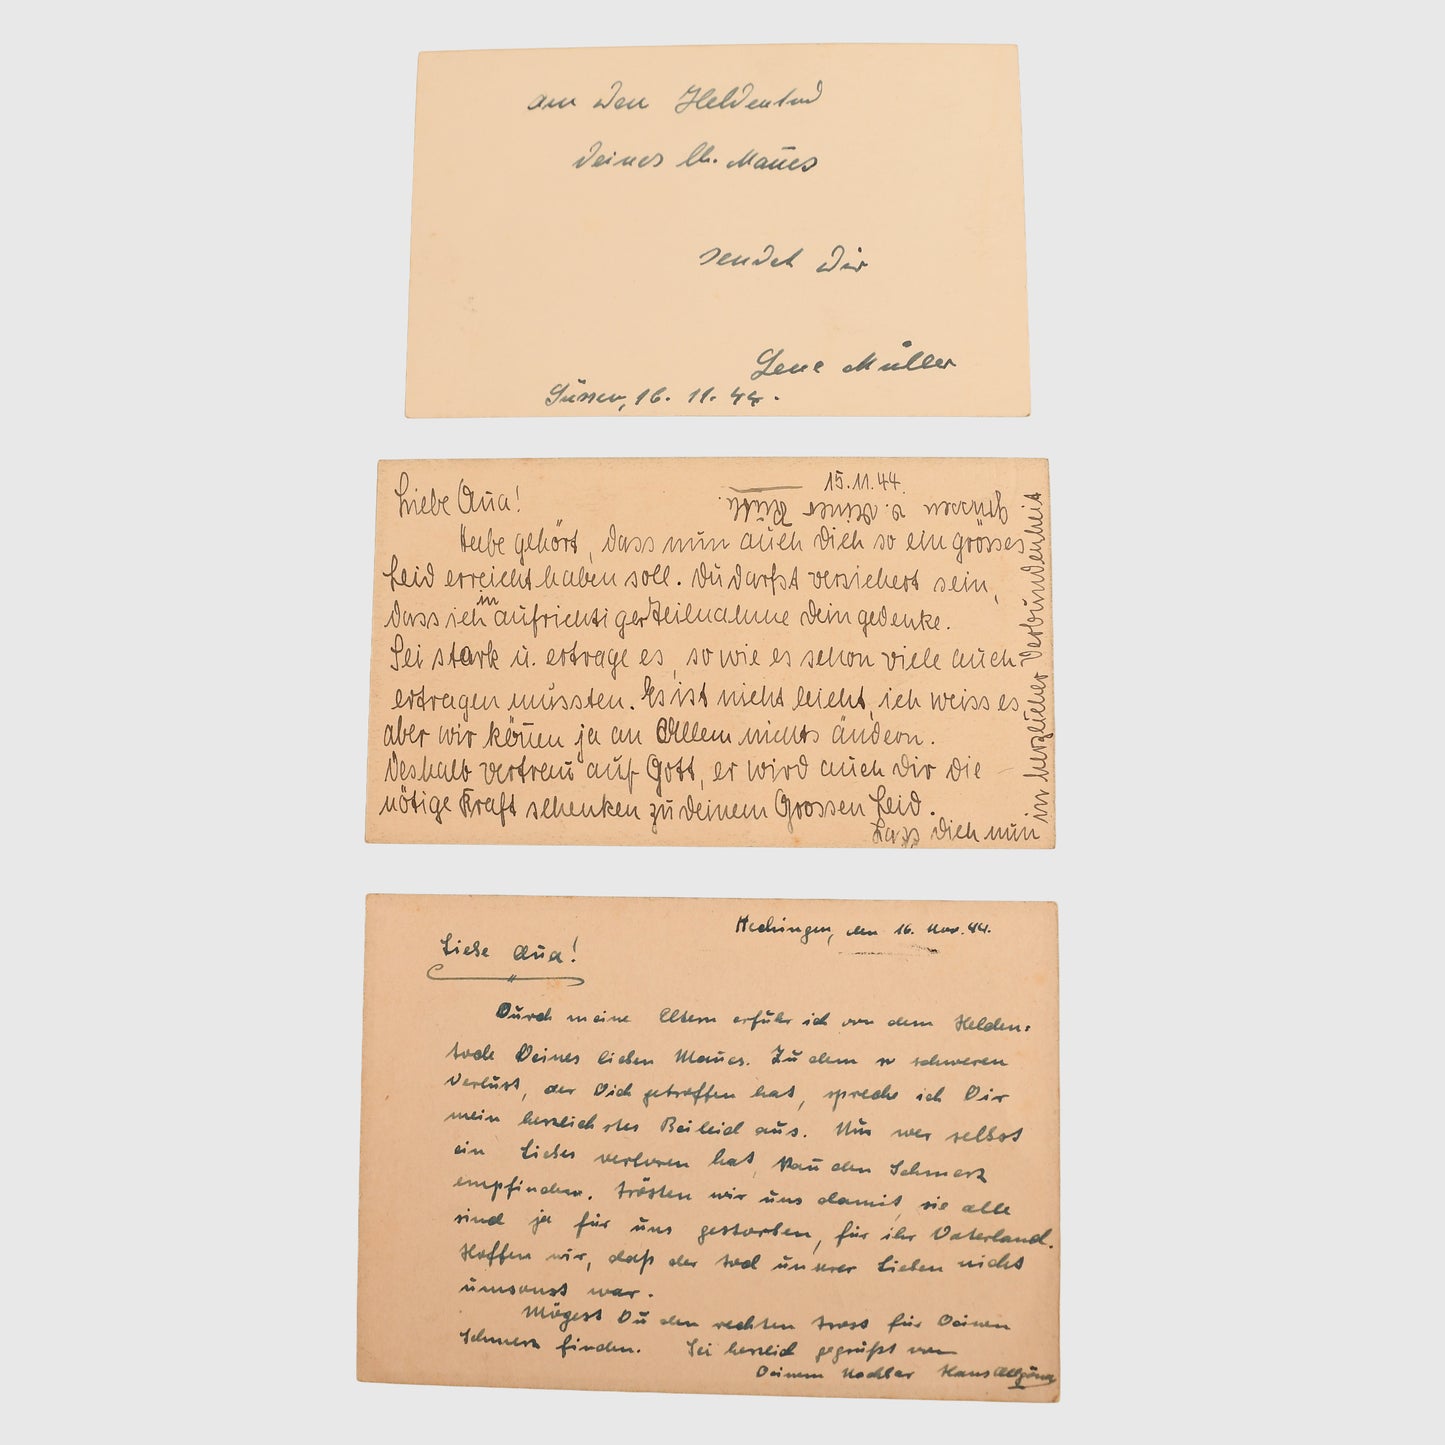 an den Heldentod
deines lb. Mañes
sendet dir
Lene Müller
Süssen, 16. 11. 44.
15.11.44.
Liebe Aña!
Habe gehört, dass nun auch dich so ein grosses
Leid erreicht haben soll. Du darfst versichert sein,
dass ich in aufrichtiger Teilnahme dein gedenke.
Sei stark u. ertrage es, so wie es schon viele auch
ertragen mussten. Es ist nicht leicht, ich weiss es,
aber wir köñen ja an Allem nichts ändern.
Deshalb vertrau auf Gott, er wird auch dir die
nötige Kraft schenken zu deinem Grossen Leid.
Lass dich nun
in herzlicher Verbundenheit
grüssen v. deiner Ruth.
Hechingen, den 16. Nov. 44.
Liebe Aña!
Durch meine Eltern erfuhr ich von dem Helden=
tode Deines lieben Mañes. Zu dem so schweren
Verlust, der Dich getroffen hat, spreche ich Dir
mein herzlichstes Beileid aus. Nur wer selbst
ein Liebes verloren hat, kañ den Schmerz
empfinden. Trösten wir uns damit, sie alle
sind ja für uns gestorben, für ihr Vaterland.
Hoffen wir, daß der Tod unserer Lieben nicht
umsonst war.
Mögest Du den rechten Trost für Deinen
Schmerz finden. Sei herzlich gegrüßt von
Deinem Nachbar Hans